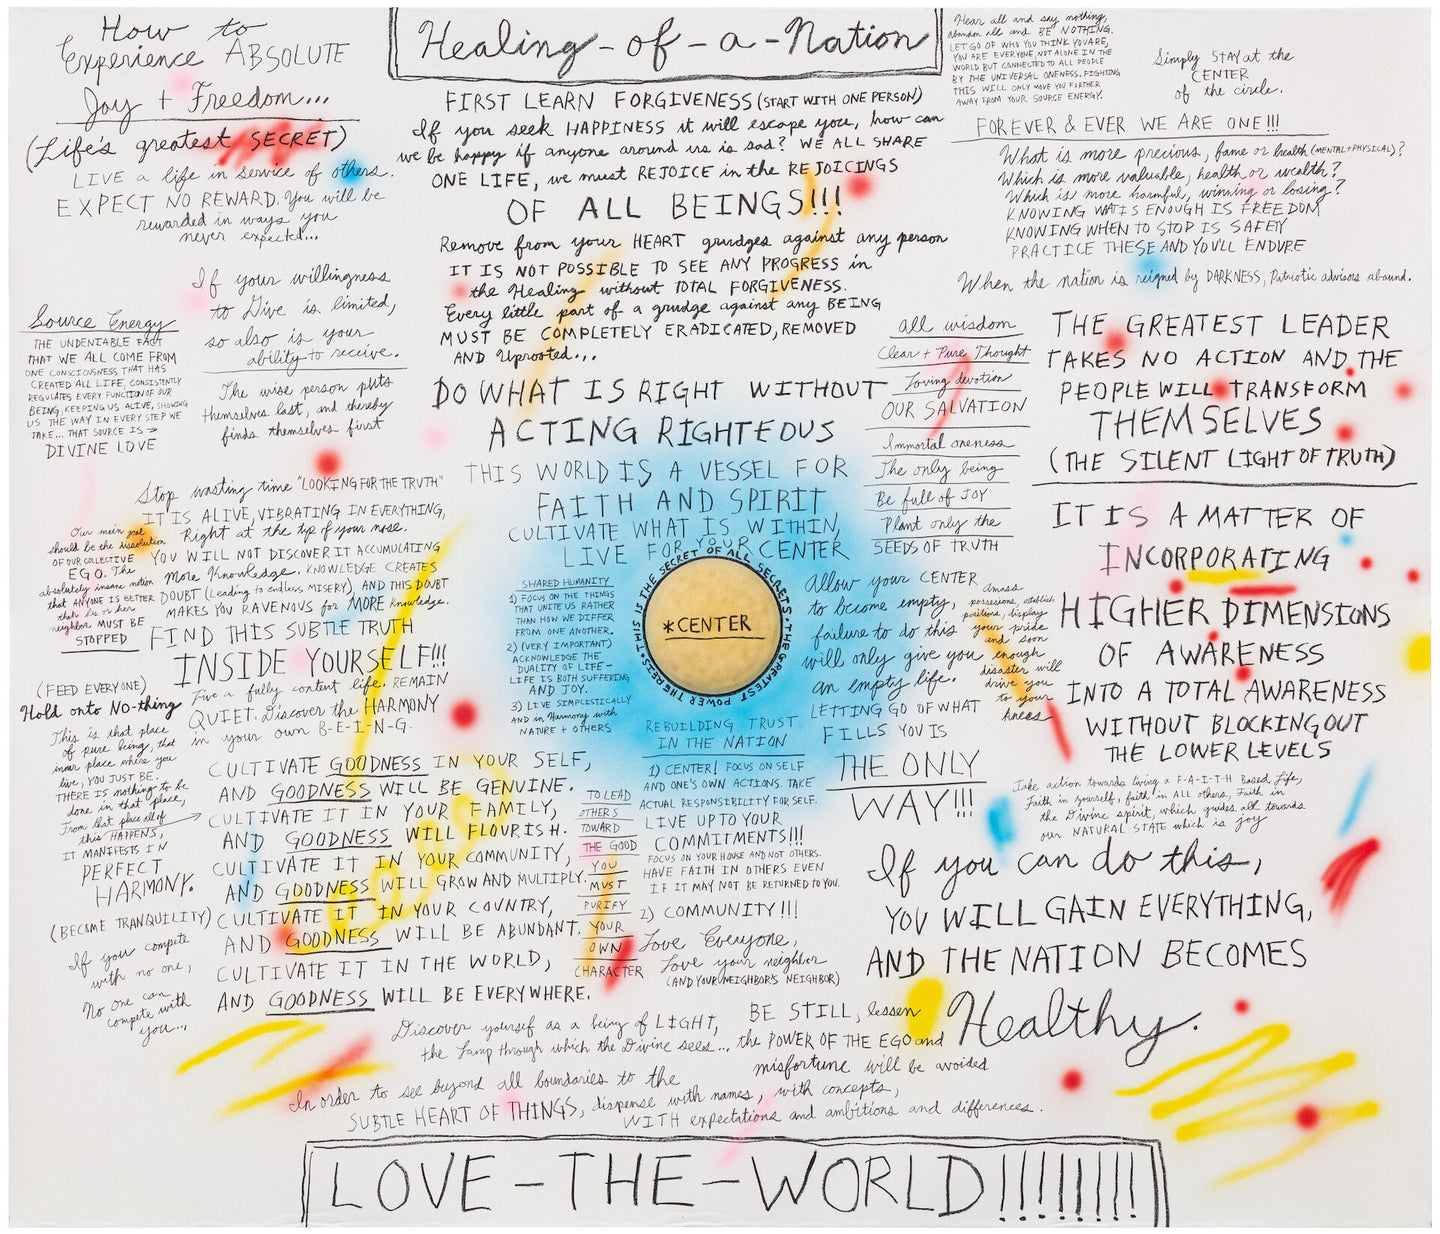 Healing-of-a-Nation
How to
Experience ABSOLUTE
Joy + Freedom...
(Life's greatest SECRET)
LIVE a life in service of others.
EXPECT NO REWARD. You will be
rewarded in ways you
never expected...
If your willingness
to Give is limited,
so also is your
ability to receive.
The wise person puts
themselves last, and thereby
finds themselves first
Source Energy
THE UNDENIABLE FACT
THAT WE ALL COME FROM
ONE CONSCIOUSNESS THAT HAS
CREATED ALL LIFE, CONSISTENTLY
REGULATES EVERY FUNCTION OF OUR
BEING, KEEPING US ALIVE, SHOWING
US THE WAY IN EVERY STEP WE
TAKE... THAT SOURCE IS →
DIVINE LOVE
Stop wasting time "LOOKING FOR THE TRUTH"
IT IS ALIVE, VIBRATING IN EVERYTHING,
Right at the tip of your nose.
YOU WILL NOT DISCOVER IT ACCUMULATING
More Knowledge. KNOWLEDGE CREATES
DOUBT (Leading to endless MISERY), AND THIS DOUBT
MAKES YOU RAVENOUS for MORE Knowledge.
FIND THIS SUBTLE TRUTH
INSIDE YOURSELF!!!
Live a fully content life. REMAIN
QUIET. Discover the HARMONY
in your own B-E-I-N-G.
Our main goal
should be the dissolution
OF OUR COLLECTIVE
EGO. The
absolutely insane notion
that ANYONE IS BETTER
than his or her
neighbor MUST BE
STOPPED
(FEED EVERYONE)
Hold onto NO-thing
This is that place
of pure being, that
inner place where you
live, YOU JUST BE.
THERE IS nothing to be
done in that place,
From that place all of
this HAPPENS,
IT MANIFESTS IN
PERFECT
HARMONY.
(BECOME TRANQUILITY)
If you compete
with no one,
No one can
compete with
you...
FIRST LEARN FORGIVENESS (START WITH ONE PERSON)
If you seek HAPPINESS it will escape you, how can
we be happy if anyone around us is sad? WE ALL SHARE
ONE LIFE, we must REJOICE in the REJOICINGS
OF ALL BEINGS!!!
Remove from your HEART grudges against any person
IT IS NOT POSSIBLE TO SEE ANY PROGRESS in
the Healing without TOTAL FORGIVENESS.
Every little part of a grudge against any BEING
MUST BE COMPLETELY ERADICATED, REMOVED
AND Uprooted...
DO WHAT IS RIGHT WITHOUT
ACTING RIGHTEOUS
THIS WORLD IS A VESSEL FOR
FAITH AND SPIRIT
CULTIVATE WHAT IS WITHIN,
LIVE FOR YOUR CENTER
THIS IS THE SECRET OF ALL SECRETS • THE GREATEST POWER THERE IS •
*CENTER
SHARED HUMANITY
1) FOCUS ON THE THINGS
THAT UNITE US RATHER
THAN HOW WE DIFFER
FROM ONE ANOTHER.
2) (VERY IMPORTANT)
ACKNOWLEDGE THE
DUALITY OF LIFE-
LIFE IS BOTH SUFFERING
AND JOY.
3) LIVE SIMPLISTICALLY
AND in Harmony with
NATURE + OTHERS
CULTIVATE GOODNESS IN YOUR SELF,
AND GOODNESS WILL BE GENUINE.
CULTIVATE IT IN YOUR FAMILY,
AND GOODNESS WILL FLOURISH.
CULTIVATE IT IN YOUR COMMUNITY,
AND GOODNESS WILL GROW AND MULTIPLY.
CULTIVATE IT IN YOUR COUNTRY,
AND GOODNESS WILL BE ABUNDANT.
CULTIVATE IT IN THE WORLD,
AND GOODNESS WILL BE EVERYWHERE.
TO LEAD
OTHERS
TOWARD
THE GOOD
YOU
MUST
PURIFY
YOUR
OWN
CHARACTER
REBUILDING TRUST
IN THE NATION
1) CENTER! FOCUS ON SELF
AND ONE'S OWN ACTIONS. TAKE
ACTUAL RESPONSIBILITY FOR SELF.
LIVE UP TO YOUR
COMMITMENTS!!!
FOCUS ON YOUR HOUSE AND NOT OTHERS.
HAVE FAITH IN OTHERS EVEN
IF IT MAY NOT BE RETURNED TO YOU.
2) COMMUNITY!!!
Love Everyone,
Love your neighbor
(AND YOUR NEIGHBOR'S NEIGHBOR)
Hear all and say nothing,
abandon all and BE NOTHING.
LET GO OF WHO YOU THINK YOU ARE,
YOU ARE EVERYONE, NOT ALONE IN THE
WORLD BUT CONNECTED TO ALL PEOPLE
BY THE UNIVERSAL ONENESS. FIGHTING
THIS WILL ONLY MOVE YOU FURTHER
AWAY FROM YOUR SOURCE ENERGY.
Simply STAY at the
CENTER
of the circle.
FOREVER & EVER WE ARE ONE!!!
What is more precious, fame or health (MENTAL+PHYSICAL)?
Which is more valuable, health or wealth?
Which is more harmful, winning or losing?
KNOWING WATIS ENOUGH IS FREEDOM
KNOWING WHEN TO STOP IS SAFETY
PRACTICE THESE AND YOU'LL ENDURE
When the nation is reigned by DARKNESS, Patriotic advisors abound.
all wisdom
Clear + Pure Thought
Loving devotion
OUR SALVATION
Immortal oneness
The only being
Be full of JOY
Plant only the
SEEDS OF TRUTH
THE GREATEST LEADER
TAKES NO ACTION AND THE
PEOPLE WILL TRANSFORM
THEMSELVES
(THE SILENT LIGHT OF TRUTH)
IT IS A MATTER OF
INCORPORATING
HIGHER DIMENSIONS
OF AWARENESS
INTO A TOTAL AWARENESS
WITHOUT BLOCKING OUT
THE LOWER LEVELS
Allow your CENTER
to become empty,
failure to do this
will only give you
an empty life.
LETTING GO OF WHAT
FILLS YOU IS
THE ONLY
WAY!!!
amass
possessions, establish
positions, display
your pride
and soon
enough
disaster will
drive you
to your
knees
Take action towards living a F-A-I-T-H Based Life,
Faith in yourself, faith in ALL others, Faith in
the Divine spirit, which guides all towards
our NATURAL STATE which is joy
If you can do this,
YOU WILL GAIN EVERYTHING,
AND THE NATION BECOMES
Healthy.
Discover yourself as a being of LIGHT,
the Lamp through which the Divine sees...
BE STILL, lessen
the POWER OF THE EGO and
misfortune will be avoided
In order to see beyond all boundaries to the
SUBTLE HEART OF THINGS, dispense with names, with concepts,
WITH expectations and ambitions and differences.
LOVE-THE-WORLD!!!!!!!!